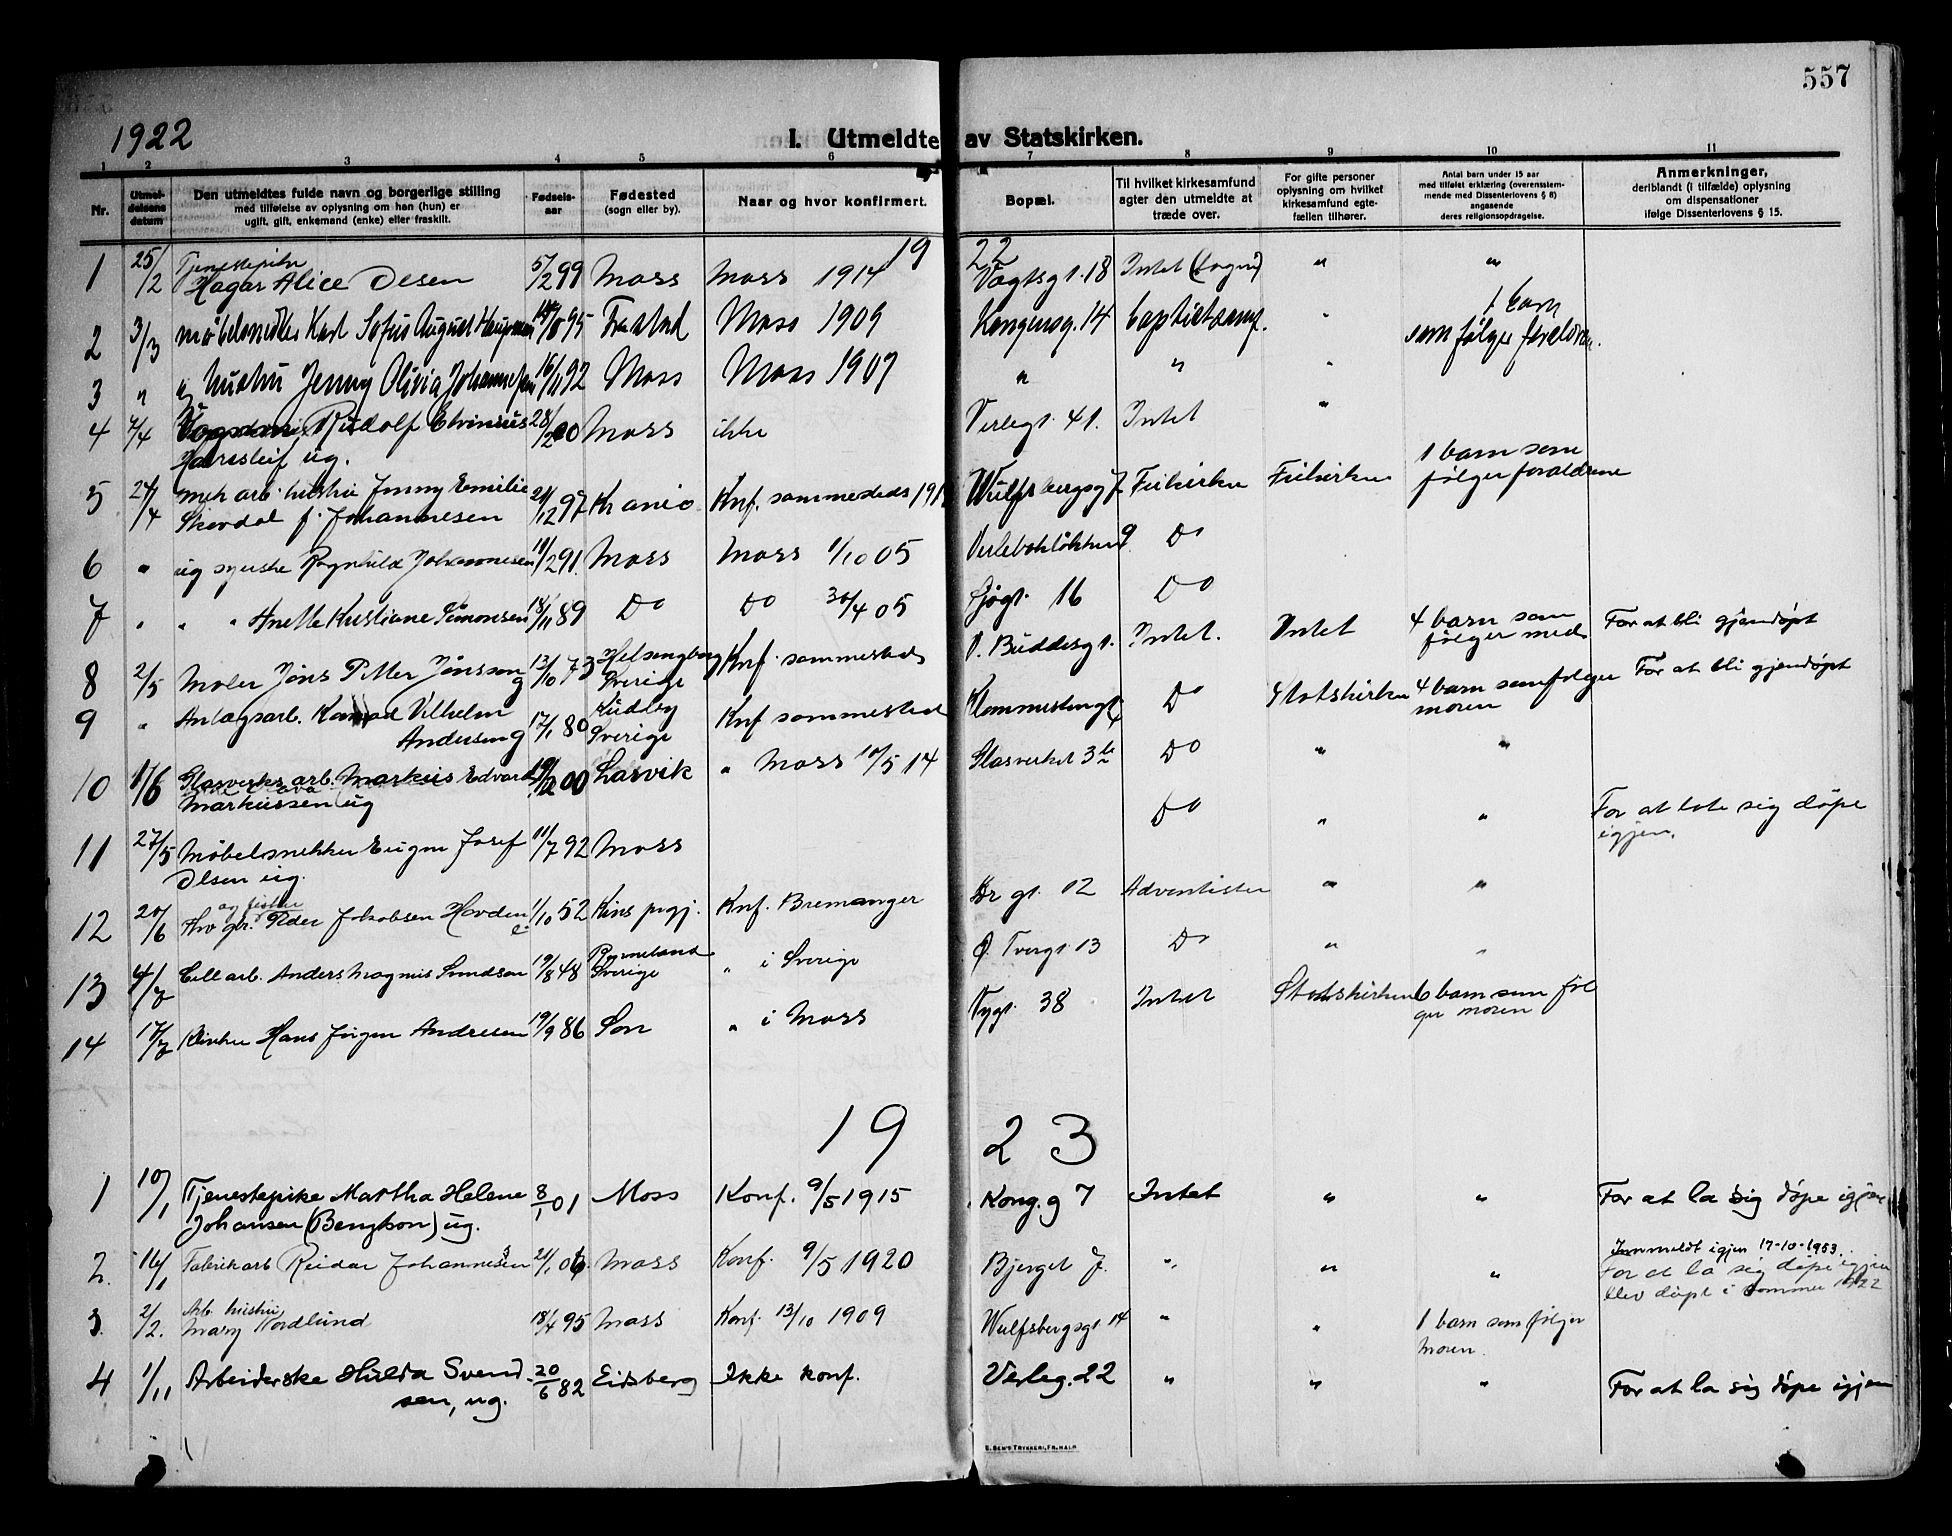 557
1922
I. Utmeldte av Statskirken.
1 2 3 4 5 6 7 8 9 10 11
Nr.
Utmel-
delsens
datum
Den utmeldtes fulde navn og borgerlige stilling
med tilføielse av oplysning om han (hun) er
ugift, gift, enkemand (enke) eller fraskilt.
Fødsels-
aar
Fødested
(sogn eller by).
Naar og hvor konfirmert.
Bopæl.
Til hvilket kirkesamfund
agter den utmeldte at
træde over.
For gifte personer
oplysning om hvilket
kirkesamfund egte-
fællen tilhører.
Antal barn under 15 aar
med tilføiet erklæring (overensstem-
mende med Dissenterlovens § 8)
angaaende
deres religionsopdragelse.
Anmerkninger,
deriblandt (i tilfælde) oplysning
om dispensationer
ifølge Dissenterlovens § 15.
19 22
1 25/2 Tjenestepike
Hagar Alice Olsen 5/2 99 Moss Moss 1914 Vogtsgt. 18 Intet " "
2 3/3 Møbelsnedker Karl Sofus August 95 Moss 1909 Kongensg. 14 Baptistsamf. " 1 barn
som følger foreldrene.
3 " og hustru Jenny Olivia Johannesen 16/11 92 Moss Moss 1907 " " "
4 7/4 Rudolf Elvinius 28/2 00 Moss ikke Verlegt. 41. Intet "
ug.
5 24/4 Mek arb. hustru Jenny Emilie 21/12 97 Knf. sammesteds Wulfsbergsg 7 Frikirken Frikirken 1 barn som
følger forældrene
Skovdal f. Johannesen
6 " ug syerske Ragnhild Johannesen 11/2 91. Moss Moss 1/10 05 Verlebakløkken 9 Do
7 " " " Anette Kristiane Simonsen 18/11 89 Do Do 30/4 05 16 Do
8 2/5 Maler Jöns Petter Jönsson g 13/10 73 Helsingborg
Sverige Knf. sammesteds V. Buddesgt. Intet. Intet 4 barn som
følger med For at bli gjendøpt
9 " Anlægsarb. Konrad Vilhelm
Andersen g 17/1 80 Sverige Knf sammesteds Do Statskirken 4 barn som følger
moren For at bli gjendøpt
10 17/6 Glasverks arb. Markus Edvard
Markussen ug 00 Larvik " Moss 10/5 14 Glasverket 3 Do " "
11 27/5 Møbelsnekker Eugen Josef
Olsen ug. 11/7 92 Moss Do " " For at late sig døpe
igjen.
12 20/6 og fisker
Peder Jakobsen Havden e. 1/10 52 Kins prgj. Knf. Bremanger Kr gt. 12 Adventister " "
13 4/7 Cell arb. Anders Magnus Svendsen 19/8 48 Sverige " i Sverige Ø. Tvergt. 13 Do " "
14 17/7 Hans Jørgen Andresen 19/9 86 Son " i Moss 38 Intet Statskirken 6 barn som føl
ger moren
19 23
1 10/1 Tjenestepike Martha Helene
Johansen (Bengtson) ug. 8/1 01 Moss Konf. 9/5 1915 Kong.g 7 Intet " " For at la sig døpe igjen
2. 16/1 Fabrikarb Reidar Johannesen 21/1 06 Moss Konf. 9/5 1920 Bjerget 7. " " " Innmeldt igjen 17-10-1953.
For at la sig døpe igjen
blev døpt i sommer 1922
3. 2/2. Arb. hustru
Mary Nordlund 18/4 95 Moss Konf. 13/10 1909 Wulfsbergsgt 14 " " 1 barn som følger
Moren.
4 1/11 Arbeiderske Hulda Svend-
sen, ug. 20/6 82 Eidsberg Ikke konf. Verleg. 22 " " " For at la sig døpe igjen
E. SEM'S TRYKKERI, FR.HALD